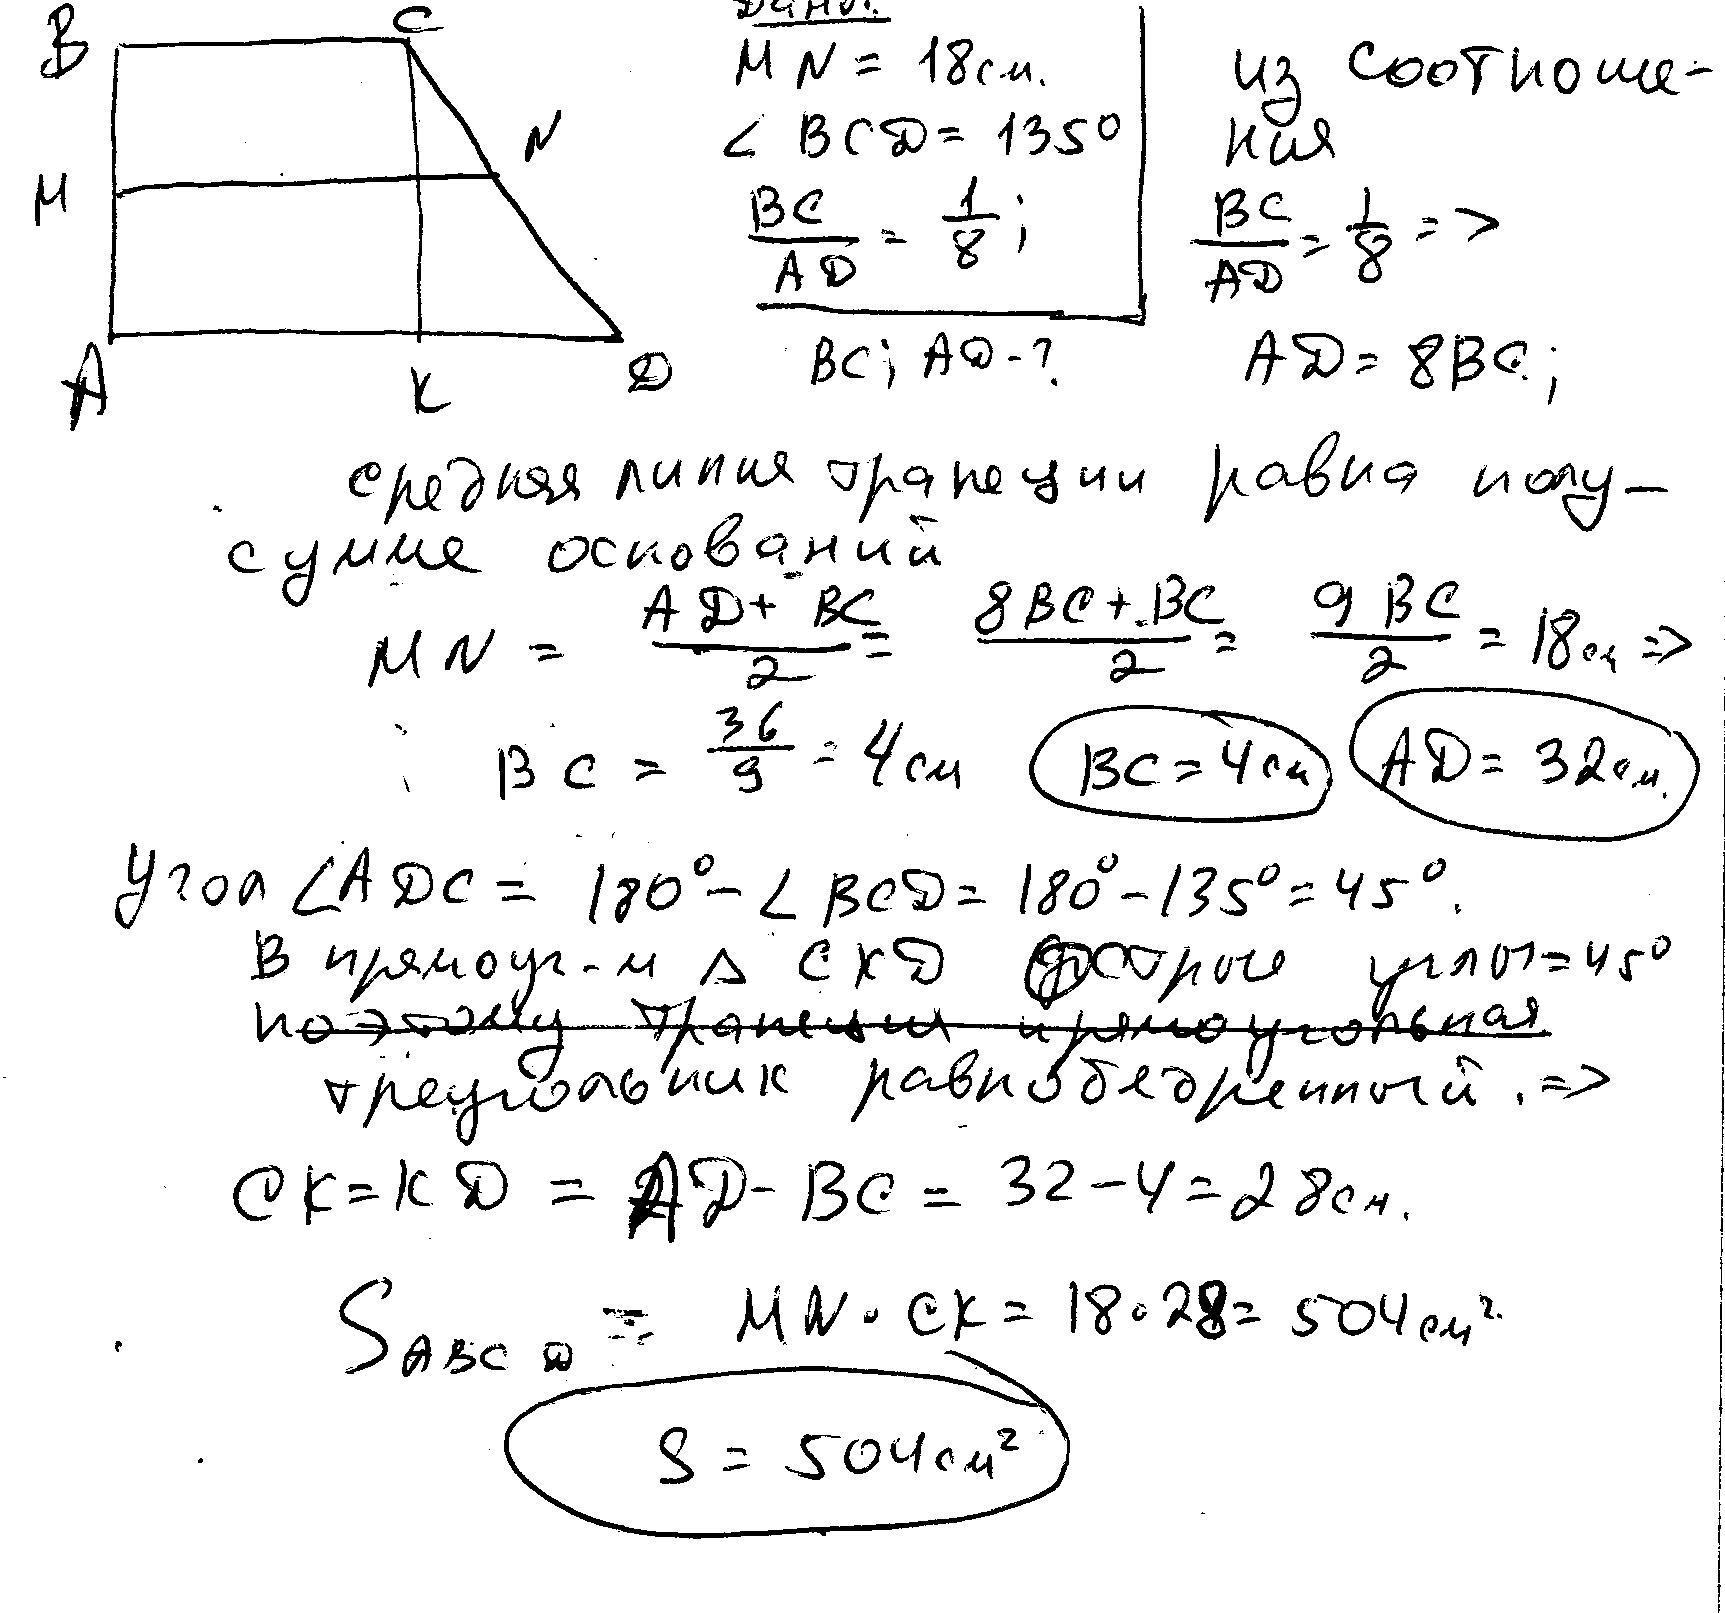 B
C
Дано:
MN = 18см.
из соотноше-
∠ BCD = 135°
ния
N
M
BC/AD = 1/8;
BC/AD = 1/8 =>
A
K
D
BC; AD - ?
AD = 8BC;
средняя линия трапеции равна полу-
сумме оснований
MN = (AD + BC)/2 = (8BC + BC)/2 = 9BC/2 = 18см =>
BC = 36/9 = 4см BC = 4см AD = 32см.
Угол ∠ADC = 180° - ∠BCD = 180° - 135° = 45°.
В прямоуг-м Δ CKD острые углы = 45°
поэтому трапеция прямоугольная
треугольник равнобедренный. =>
CK = KD = AD - BC = 32 - 4 = 28см.
S ABCD = MN · CK = 18 · 28 = 504см²
S = 504см²